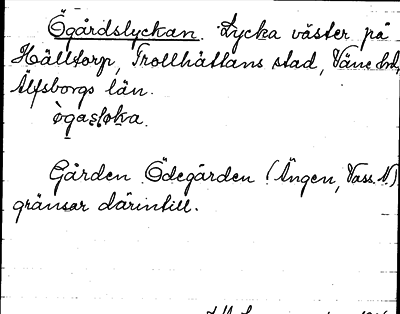 Ögårdslyckan. Lycka väster på
Hälltorp, Trollhättans stad, Väne hd,
Älfsborgs län.
Gården Ödegården (Ängen, Vass. N.)
gränsar därintill.